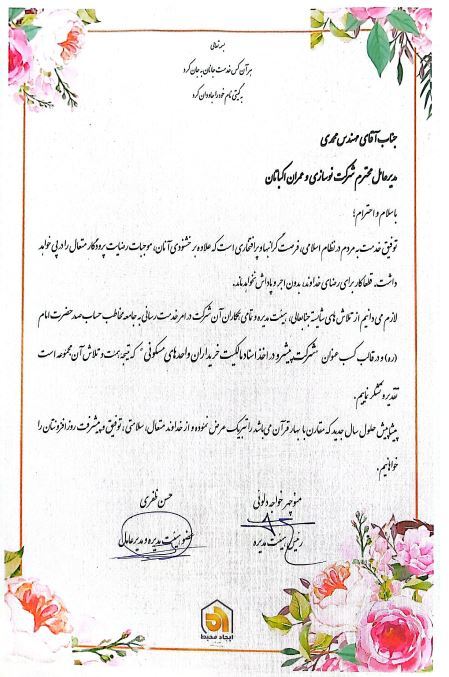 بسمه تعالی
هر آن کس خدمت جانان به جان کرد
به گیتی نام خود را جاودان کرد
جناب آقای مهندس محمدی
مدیرعامل محترم شرکت نوسازی و عمران اکباتان
با سلام و احترام؛
توفیق خدمت به مردم در نظام اسلامی، فرصت گرانبها و پرافتخاری است که علاوه بر خشنودی آنان، موجبات رضایت پروردگار متعال را در پی خواهد
داشت. قطعا کار برای رضای خداوند، بدون اجر و پاداش نخواهد ماند.
لازم می دانیم از تلاش های شایسته جنابعالی، هیئت مدیره و تمامی همکاران آن شرکت در امر خدمت رسانی به جامعه مخاطب حساب صد حضرت امام
(ره) و در قالب کسب عنوان "شرکت پیشرو در اخذ اسناد مالکیت خریداران واحدهای مسکونی" که نتیجه همت و تلاش آن مجموعه است
تقدیر و تشکر نماییم.
پیشاپیش حلول سال جدید که مقارن با بهار قرآن می باشد را تبریک عرض نموده و از خداوند متعال، سلامتی، توفیق و پیشرفت روزافزونتان را
خواهانیم.
منوچهر خواجه دلوئی
رئیس هیئت مدیره
حسن ظفری
عضو هیئت مدیره و مدیرعامل
ایجاد محیط